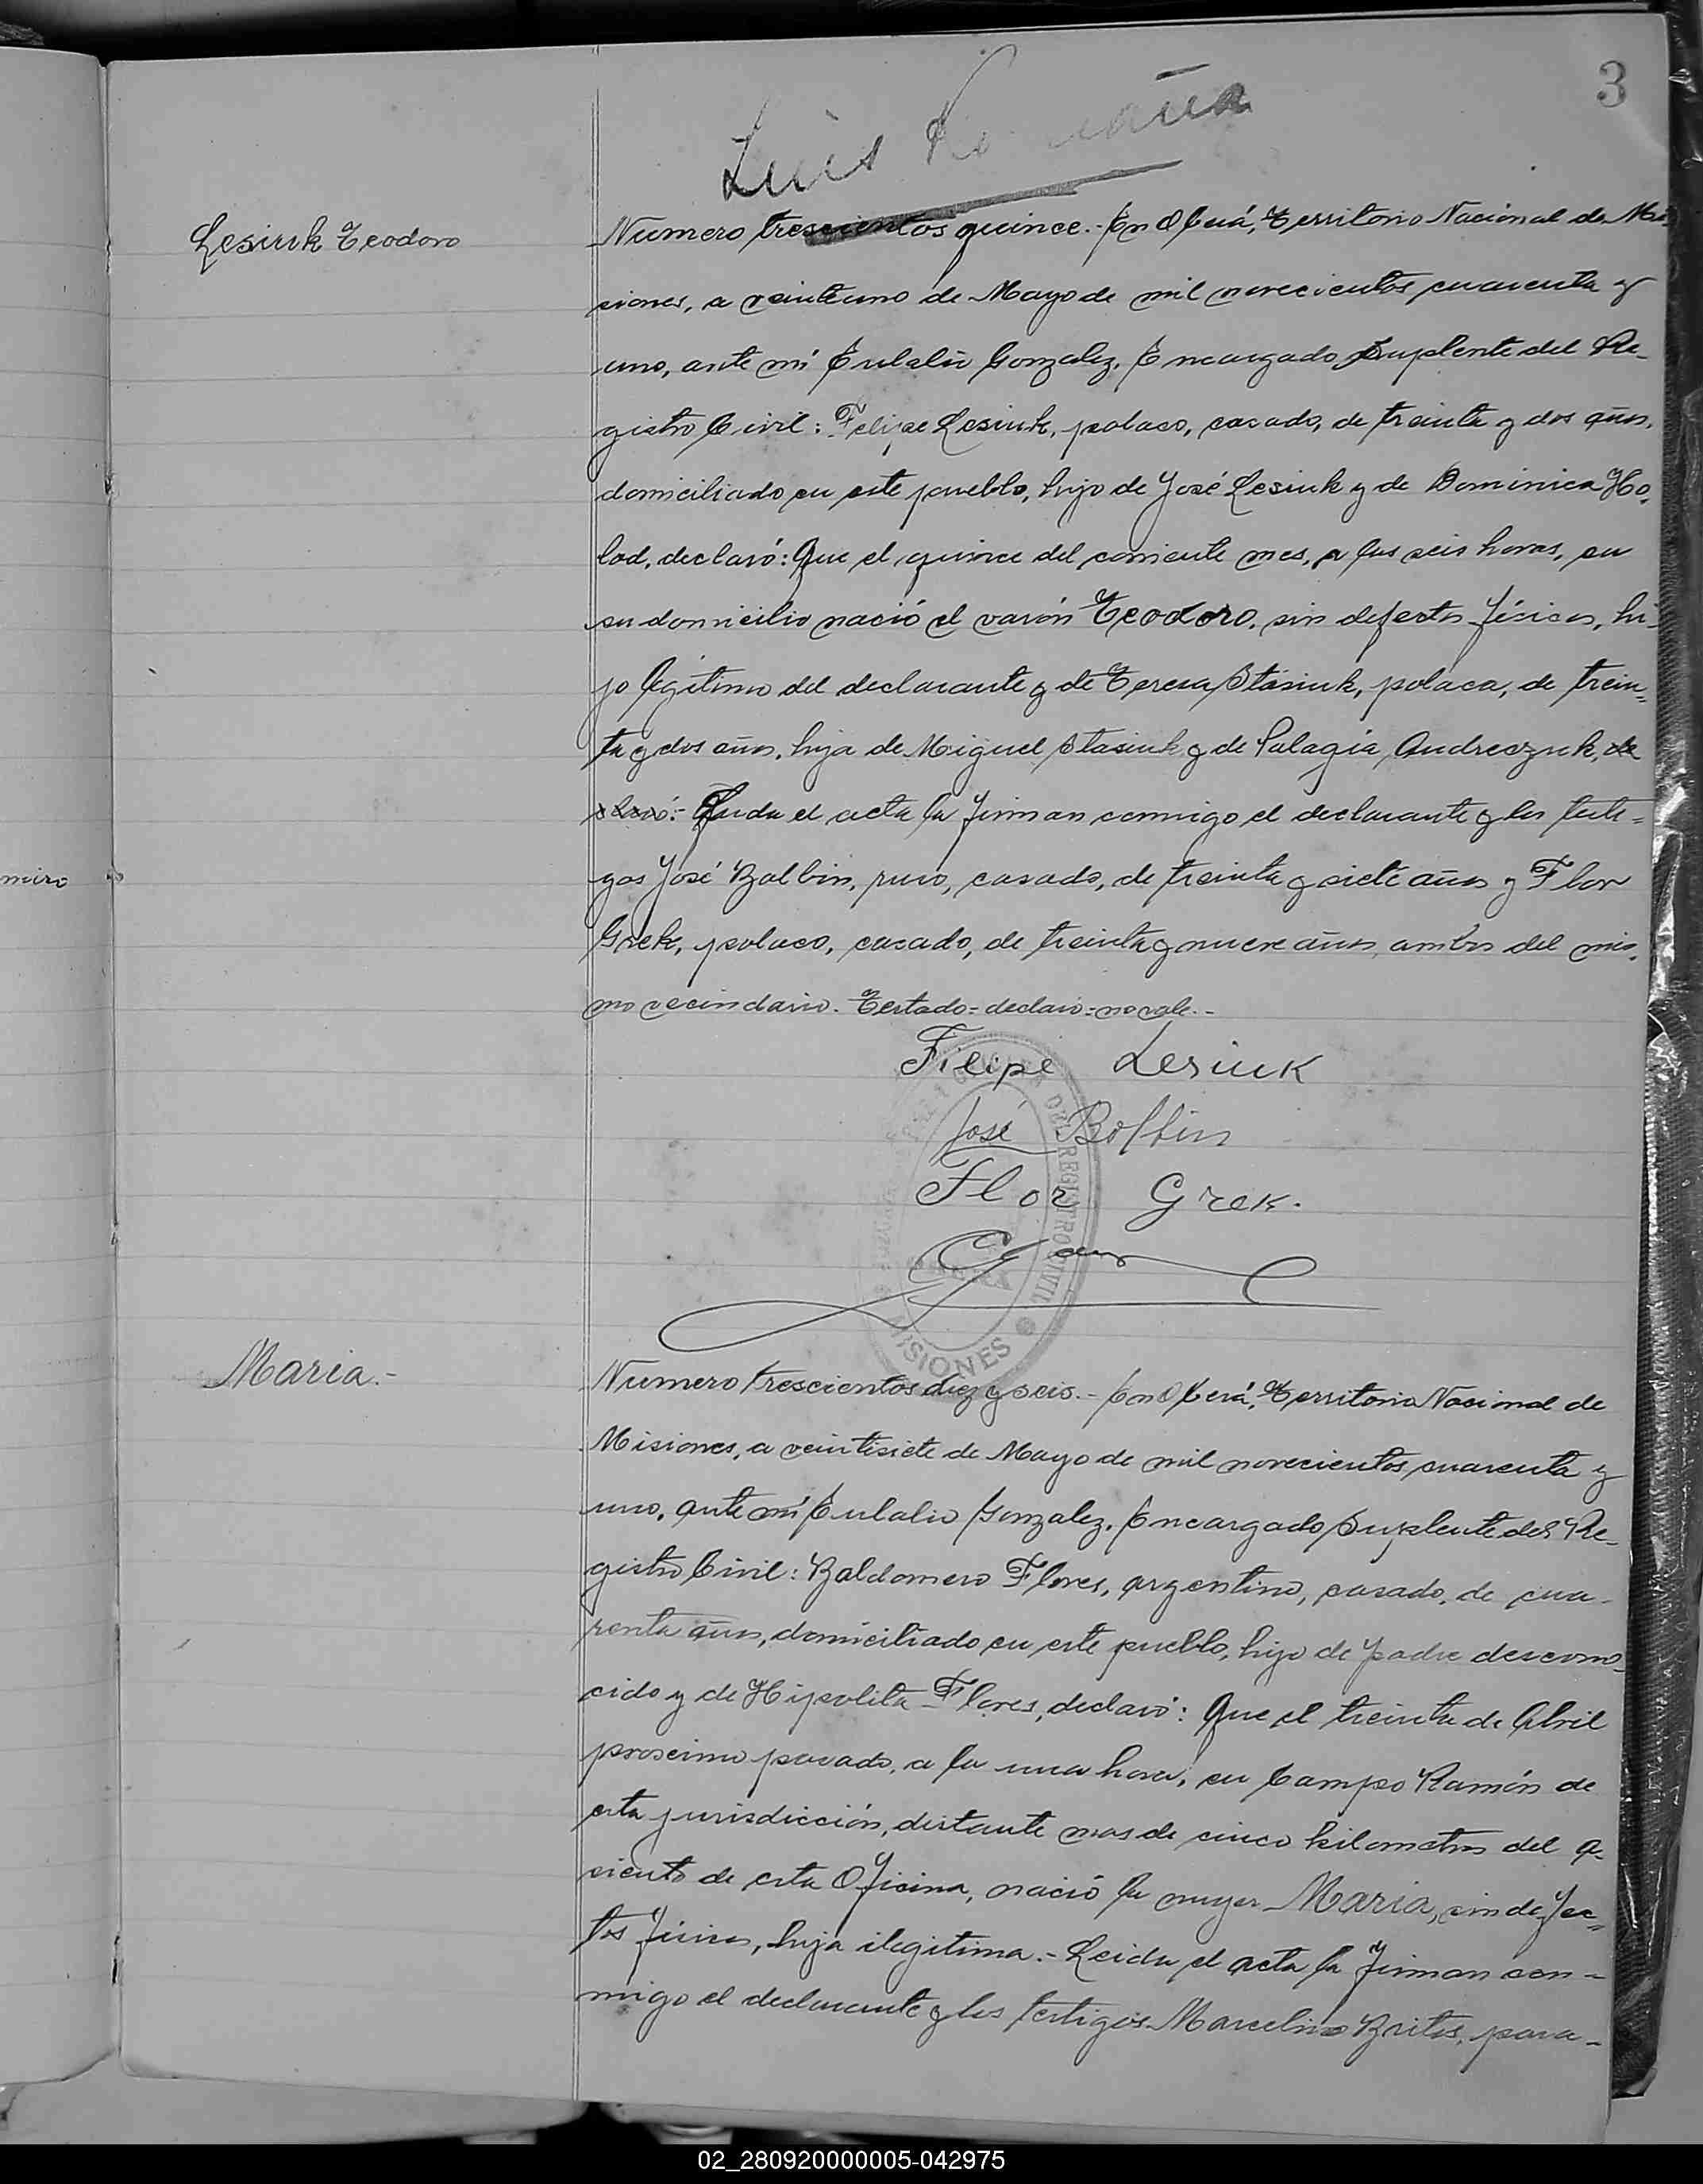 3
Luis
Lesiuk Teodoro
Numero trescientos quince.- En Oberá, Territorio Nacional de Mi-
siones, a veintiuno de Mayo de mil novecientos cuarenta y
uno, ante mí Eulalio Gonzalez, Encargado Suplente del Re-
gistro Civil: Felipe Lesiuk, polaco, casado, de treinta y dos años,
domiciliado en este pueblo, hijo de José Lesiuk y de Dominica Ho-
lod, declaró: Que el quince del corriente mes, a las seis horas, en
su domicilio nació el varón Teodoro, sin defectos físicos, hi-
jo legítimo del declarante y de Teresa Stasiuk, polaca, de trein=
ta y dos años, hija de Miguel Stasiuk y de Palagia Andreszuk, de
claró.- Leida el acta la firman conmigo el declarante y los testi=
gos José Balbin, ruso, casado, de treinta y siete años y Flor
Grek, polaco, casado, de treinta y nueve años, ambos del mis-
mo vecindario. Testado=declaró=no vale.-
Filipe Lesiuk
José Bolbin
Flor Grek.
DEL REGISTRO CIVIL
MISIONES
miro
Maria.-
Numero trescientos diez y seis.- En Oberá, Territorio Nacional de
Misiones, a veintisiete de Mayo de mil novecientos cuarenta y
uno, ante mí Eulalio Gonzalez, Encargado Suplente del Re-
gistro Civil: Baldomero Flores, argentino, casado, de cua-
renta años, domiciliado en este pueblo, hijo de padre descono-
cido y de Hipolita Flores, declaró: Que el treinta de Abril
proscimo pasado, a la una hora, en Campo Ramón de
esta jurisdicción, distante mas de cinco kilometros del a-
siento de esta Oficina, nació la mujer Maria, sin defec=
tos físicos, hija ilegitima.- Leida el acta la firman con-
migo el declarante y los testigos Marcelino Britos, para-
02_280920000005-042975